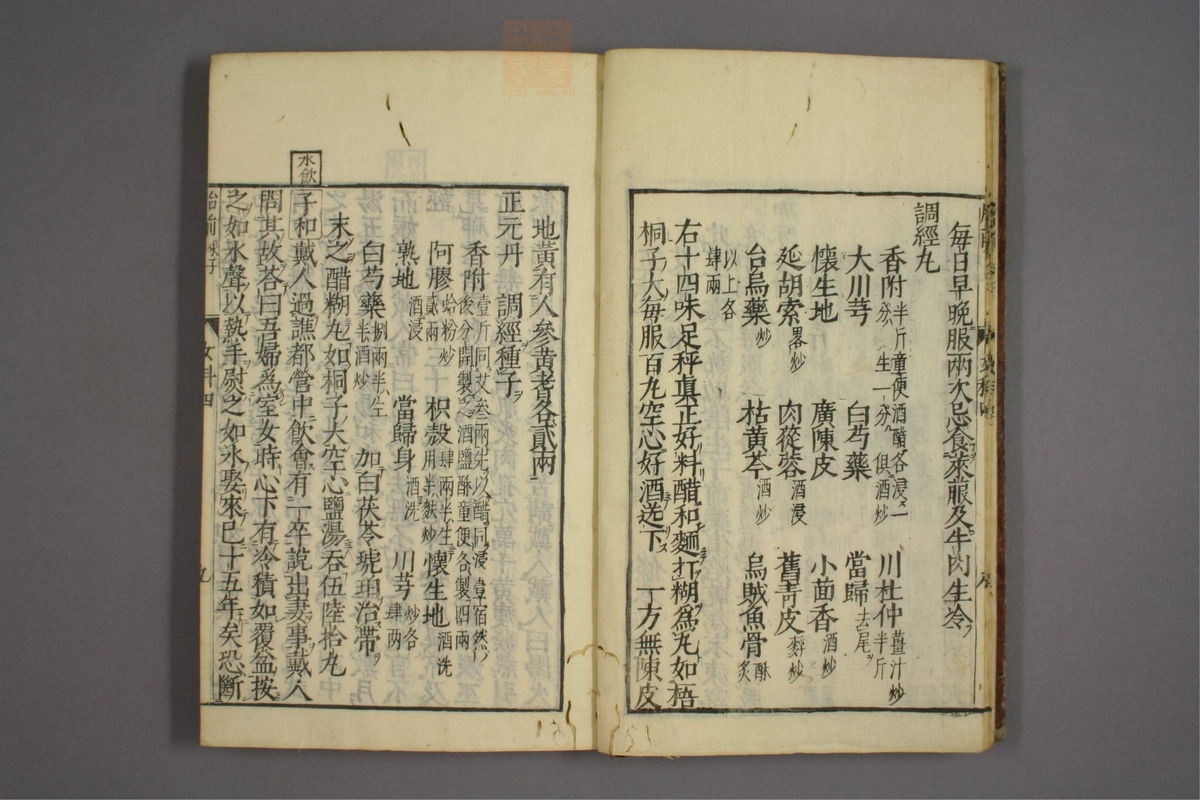 每日早晚服兩次忌食萊菔及牛肉生冷
調經丸
香附半斤童便酒醋各浸一分生一分俱酒炒 川杜仲薑汁炒半斤
大川芎 白芍藥 當歸去尾
懷生地 廣陳皮 小茴香酒炒
延胡索畧炒 肉蓯蓉酒浸 舊青皮麩炒
台烏藥炒 枯黃芩酒炒 烏賊魚骨酥炙
以上各肆兩
右十四味足秤眞正好料醋和麵打糊爲丸如梧
桐子大每服百丸空心好酒送下 一方無陳皮
地黃有人參黃耆各貳兩
正元丹 調經種子
香附壹斤同艾叁兩先以醋同浸壹宿然後分開製之酒鹽酥童便各製四兩
阿膠蛤粉炒貳兩 枳殼肆兩半生用半麩炒 懷生地酒洗
熟地酒浸 當歸身酒洗 川芎炒各肆兩
白芍藥捌兩半生半酒炒 加白茯苓琥珀治帶
末之醋糊丸如桐子大空心鹽湯吞伍陸拾丸
水飲
子和戴人過譙都營中飲會有一卒說出妻事戴人
問其故荅曰吾婦爲室女時心下有冷積如覆盆按
之如水聲以熱手熨之如氷娶來已十五年矣恐斷
胎前 求子
女科四
九